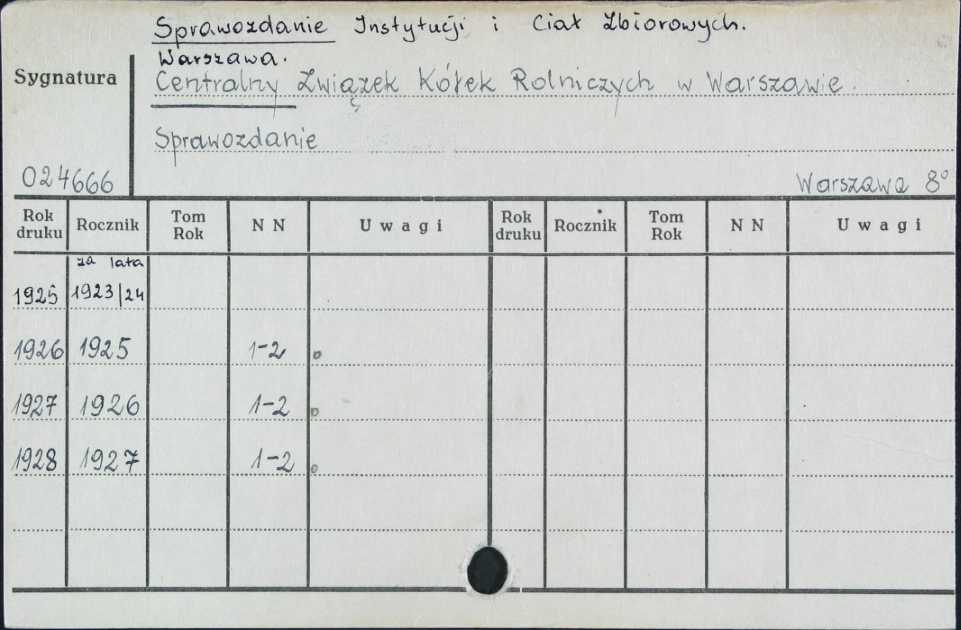 Sprawozdanie Instytucji i Ciał Zbiorowych.
Warszawa.
Sygnatura
Centralny Związek Kółek Rolniczych w Warszawie.
Sprawozdanie
024666
Warszawa 8°
Rok druku Rocznik Tom Rok NN Uwagi Rok druku Rocznik Tom Rok NN Uwagi
za lata
1925 1923/24
1926 1925 1-2
1927 1926 1-2
1928 1927 1-2